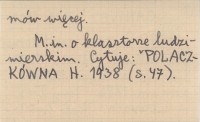 mów więcej.
M.in. o klasztorze ludzi-
mierskim. Cytuje: "POLACZ-
KÓWNA H. 1938 (s. 47).